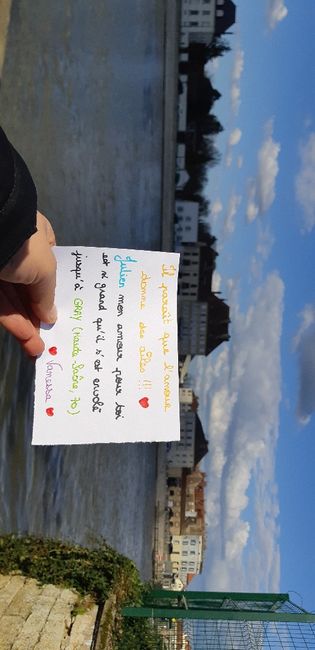 Il paraît que l'amour
donne des ailes !!!
Julien mon amour pour toi
est si grand qu'il s'est envolé
jusqu'à GRAY (Haute-Saône, 70)
Vanessa